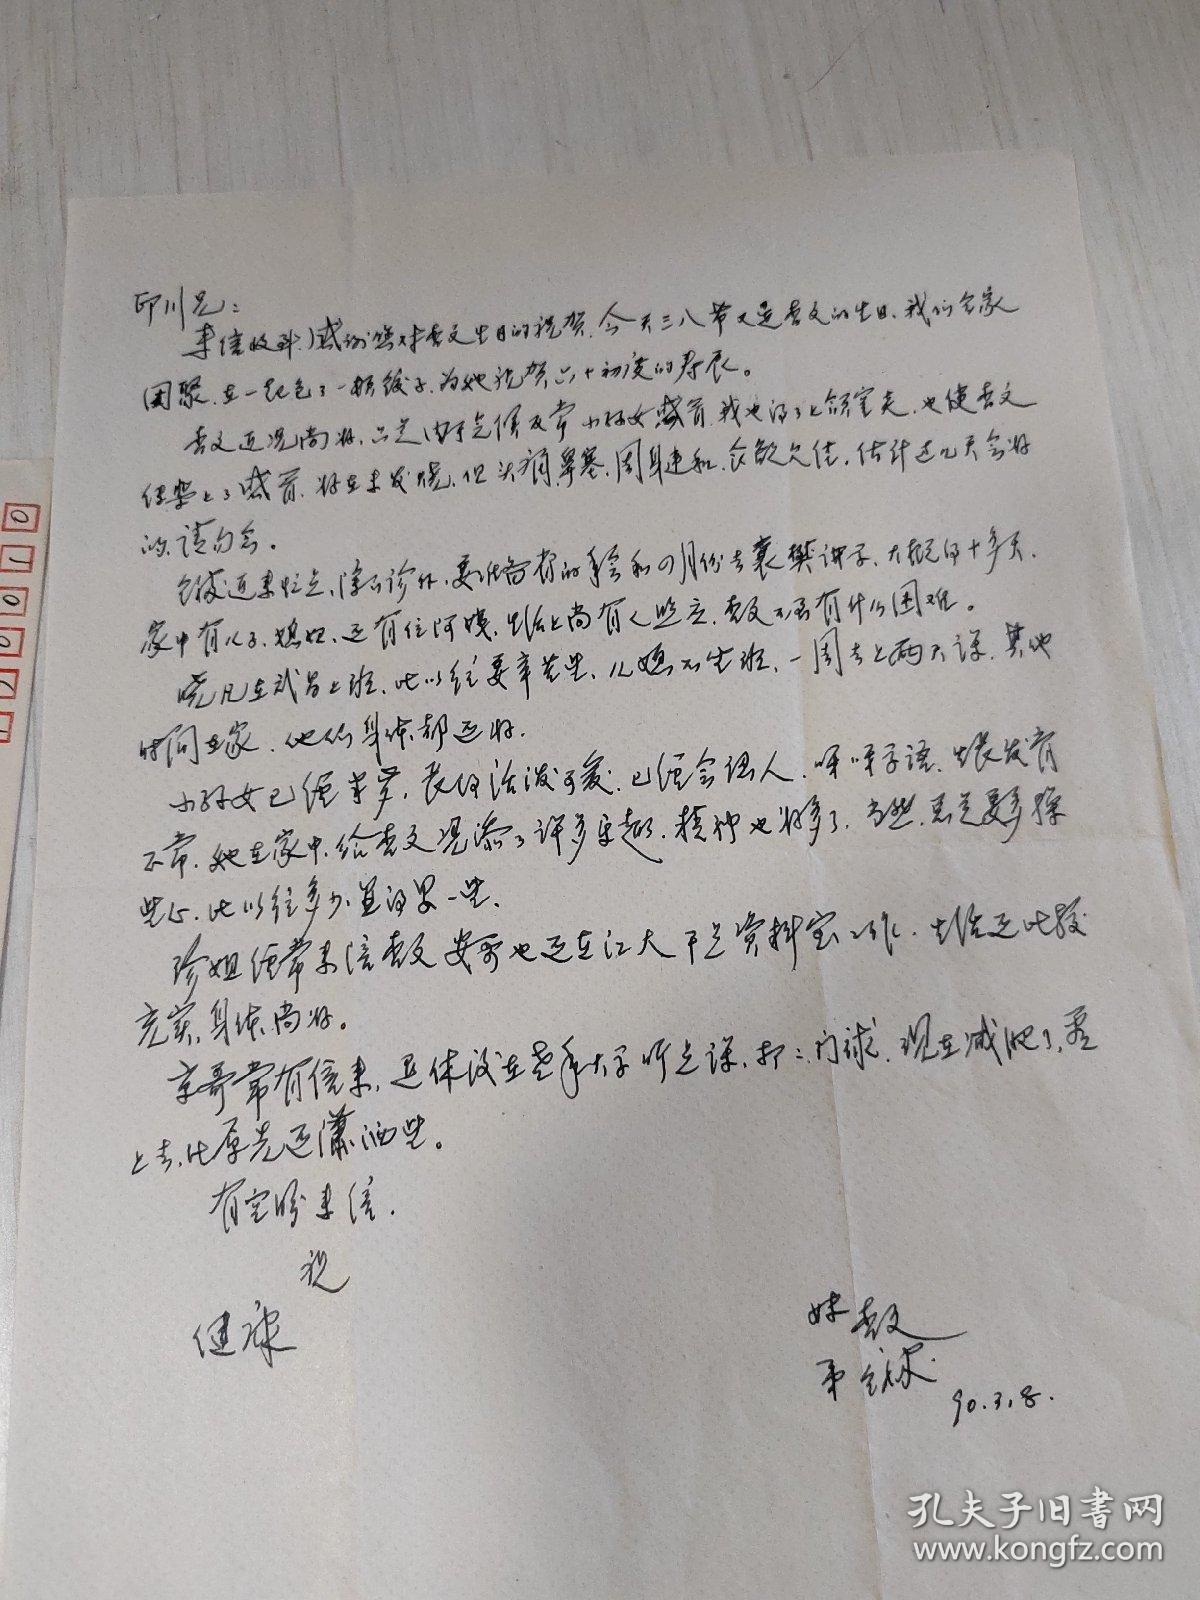 印川兄：
来信收到，感谢您对杏文生日的祝贺，今天三八节又是杏文的生日，我们全家
团聚，在一起包了一顿饺子，为她祝贺六十初度的寿辰。
杏文近况尚好，只是由于气候反常，小孙女感冒，我也得了上颌窦炎，也使杏文
传染上了感冒，好在未发烧，但头痛、鼻塞、周身违和，食欲欠佳，估计近几天会好
的，请勿念。
近来忙点，除门诊外，要准备 的年会和四月份去襄樊讲学，大概得十多天，
家中有儿子、媳妇，还有位阿姨，生活上尚有人照应，杏文不会有什么困难。
晓凡在武昌上班，比以往要辛苦些，儿媳不坐班，一周去上两天课，其他
时间在家，他们身体都还好。
小孙女已经半岁，长得活泼可爱，已经会认人，呀呀学语，生长发育
正常，她在家中，给杏文增添了许多乐趣，精神也好多了，当然，总是要多操
些心，比以往多少显得累一些。
珍姐经常来信 也还在江大干点资料室工作，生活还比较
充实，身体尚好。
京哥常有信来，退休后在老年大学听点课，打打门球，现在减肥了，看
上去比原先还潇洒些。
有空盼来信。
祝
健康
妹 杏文
弟
90.3.8.
孔夫子旧书网
www.kongfz.com
0
1
0
0
7
1